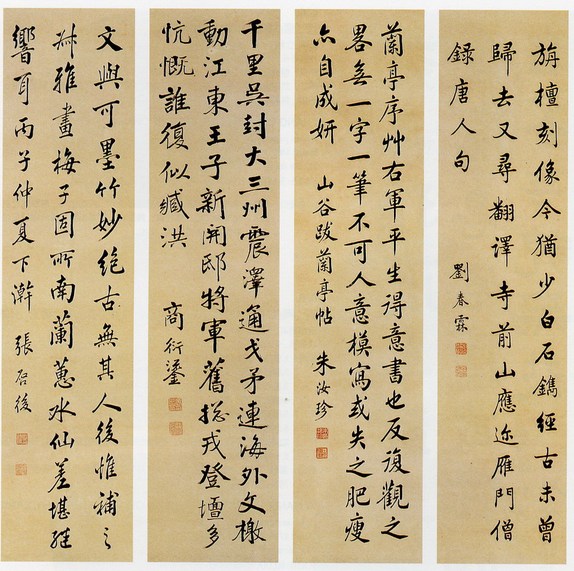 旃檀刻像今猶少白石鐫經古未曾
歸去又尋翻譯寺前山應迩雁門僧
錄唐人句
劉春霖
蘭亭序艸右軍平生得意書也反復觀之
畧無一字一筆不可人意模寫或失之肥瘦
亦自成妍
山谷跋蘭亭帖
朱汝珍
千里吳封大三州震澤通戈矛連海外文檄
動江東王子新開邸將軍舊揔戎登壇多
忼慨誰復似臧洪
商衍鎏
文與可墨竹妙絕古無其人後惟補之
畫梅子固所南蘭蕙水仙差堪繼
響耳丙子仲夏下澣
張啓後